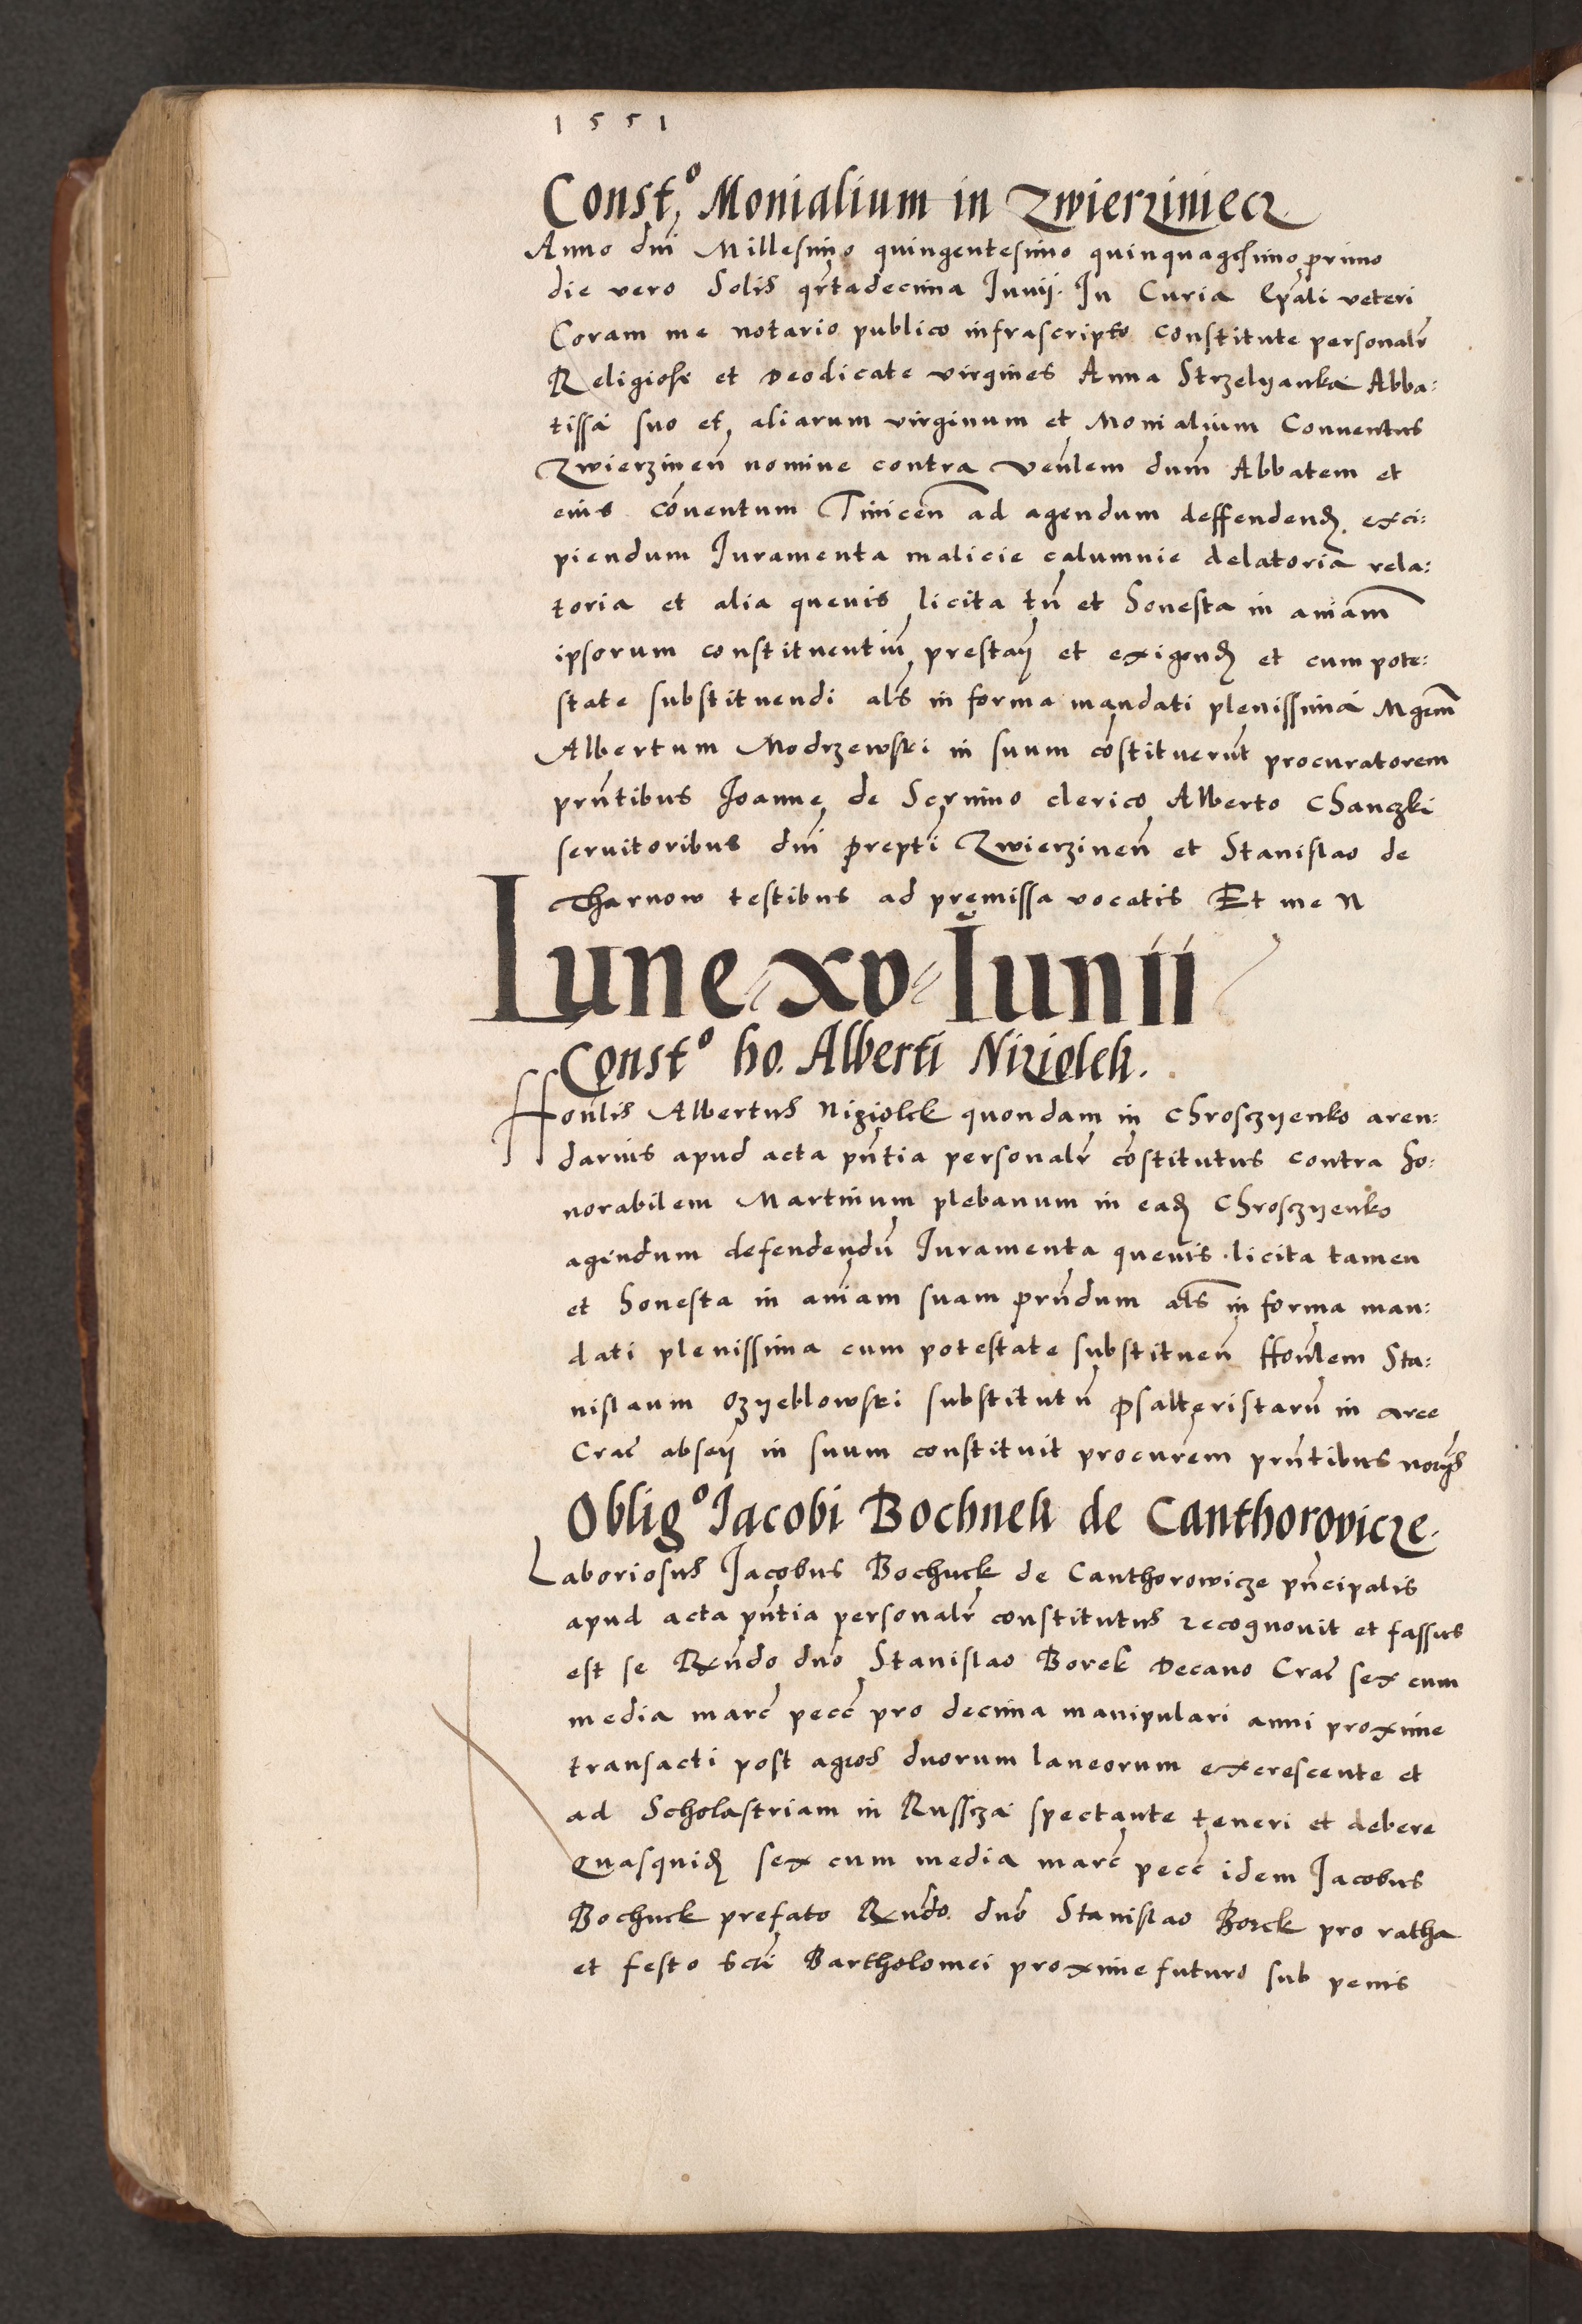 1551
Constº Monialium in Zwierziniecz
Anno dni Millesimo quingentesimo quinquagesimo primo
die vero Solis qrtadecima Junij. In Curia Epali veteri
Coram me notario publico infrascripto constitute personalr
Religiose et Deodicate virgines Anna Strzelyanka Abba:
tissa suo et aliarum virginum et Monialium Conventus
Zwierzinen nomine contra Venlem dum Abbatem et
eius coventum Tinicen ad agendum deffendend exci:
piendum Juramenta malicie calumnie delatoria rela:
toria et alia quevis licita tn et honesta in aniam
ipsorum constituentiu prestan et exigend et cum pote:
state substituendi als in forma mandati plenissima Mgrm
Albertum Modrzewski in suum costituerunt procuratorem
prntibus Joanne de Scrnino clerico Alberto Chanczki
servitoribus dni prepti Zwierzinen et Stanislao de
Tharnow testibus ad premissa vocatis Et me N
Lune xv Junii
Constº ho. Alberti Niziolek.
Honlis Albertus Niziolek quondam in Chrosczyenko aren:
darius apud acta pntia personalr costitutus contra ho:
norabilem Martinum plebanum in ead Chrosczyenko
agendum defendendu Juramenta quevis licita tamen
et honesta in aniam suam prndum als in forma man:
dati plenissima cum potestate substituen Honlem Sta:
nislaum Ozyeblowski substitutu psalteristaru in arce
Crac absen in suum constituit procurem prntibus
Obligº Jacobi Bochnek de Canthorovicze.
Laboriosus Jacobus Bochnek de Canthorowicze pncipalis
apud acta pntia personalr constitutus recognovit et fassus
est se Rndo dno Stanislao Borek Decano Crac sex cum
media marc pecc pro decima manipulari anni proxime
transacti post agros duorum laneorum excrescente et
ad Scholastriam in Russcza spectante teneri et debere
Quasquid sex cum media marc pecc idem Jacobus
Bochnek prefato Rndo dno Stanislao Borek pro ratha
et festo scti Bartholomei proxime futuro sub penis